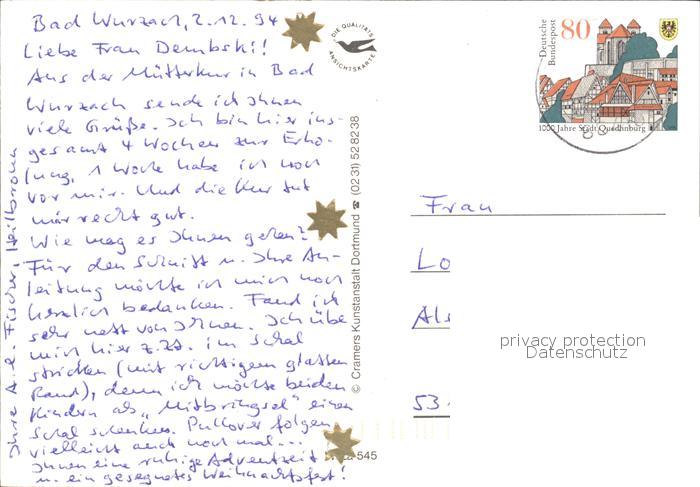 Bad Wurzach, 2.12.94
Liebe Frau Dembski!
Aus der Mütterkur in Bad
Wurzach sende ich Ihnen
viele Grüße. Ich bin hier ins-
gesamt 4 Wochen zur Erho-
lung, 1 Woche habe ich noch
vor mir. Und die Kur tut
mir recht gut.
Wie mag es Ihnen gehen?
Für den Schnitt u. Ihre An-
leitung möchte ich mich noch
herzlich bedanken. Fand ich
sehr nett von Ihnen. Ich übe
mich hier z.Zt. im Schal
stricken (mit richtigem glatten
Rand), denn ich möchte beiden
Kindern als „Mitbringsel" einen
Schal schenken. Pullover folgen
vielleicht auch noch mal...
Ihnen eine ruhige Adventszeit
u. ein gesegnetes Weihnachtsfest!
Ihre A. e. Fischer, Heilbronn
DIE QUALITÄTS
ANSICHTSKARTE
© Cramers Kunstanstalt Dortmund ☎ (0231) 528238
545
Deutsche
Bundespost
80
1000 Jahre Stadt Quedlinburg
Frau
Lo
Als
53
privacy protection
Datenschutz